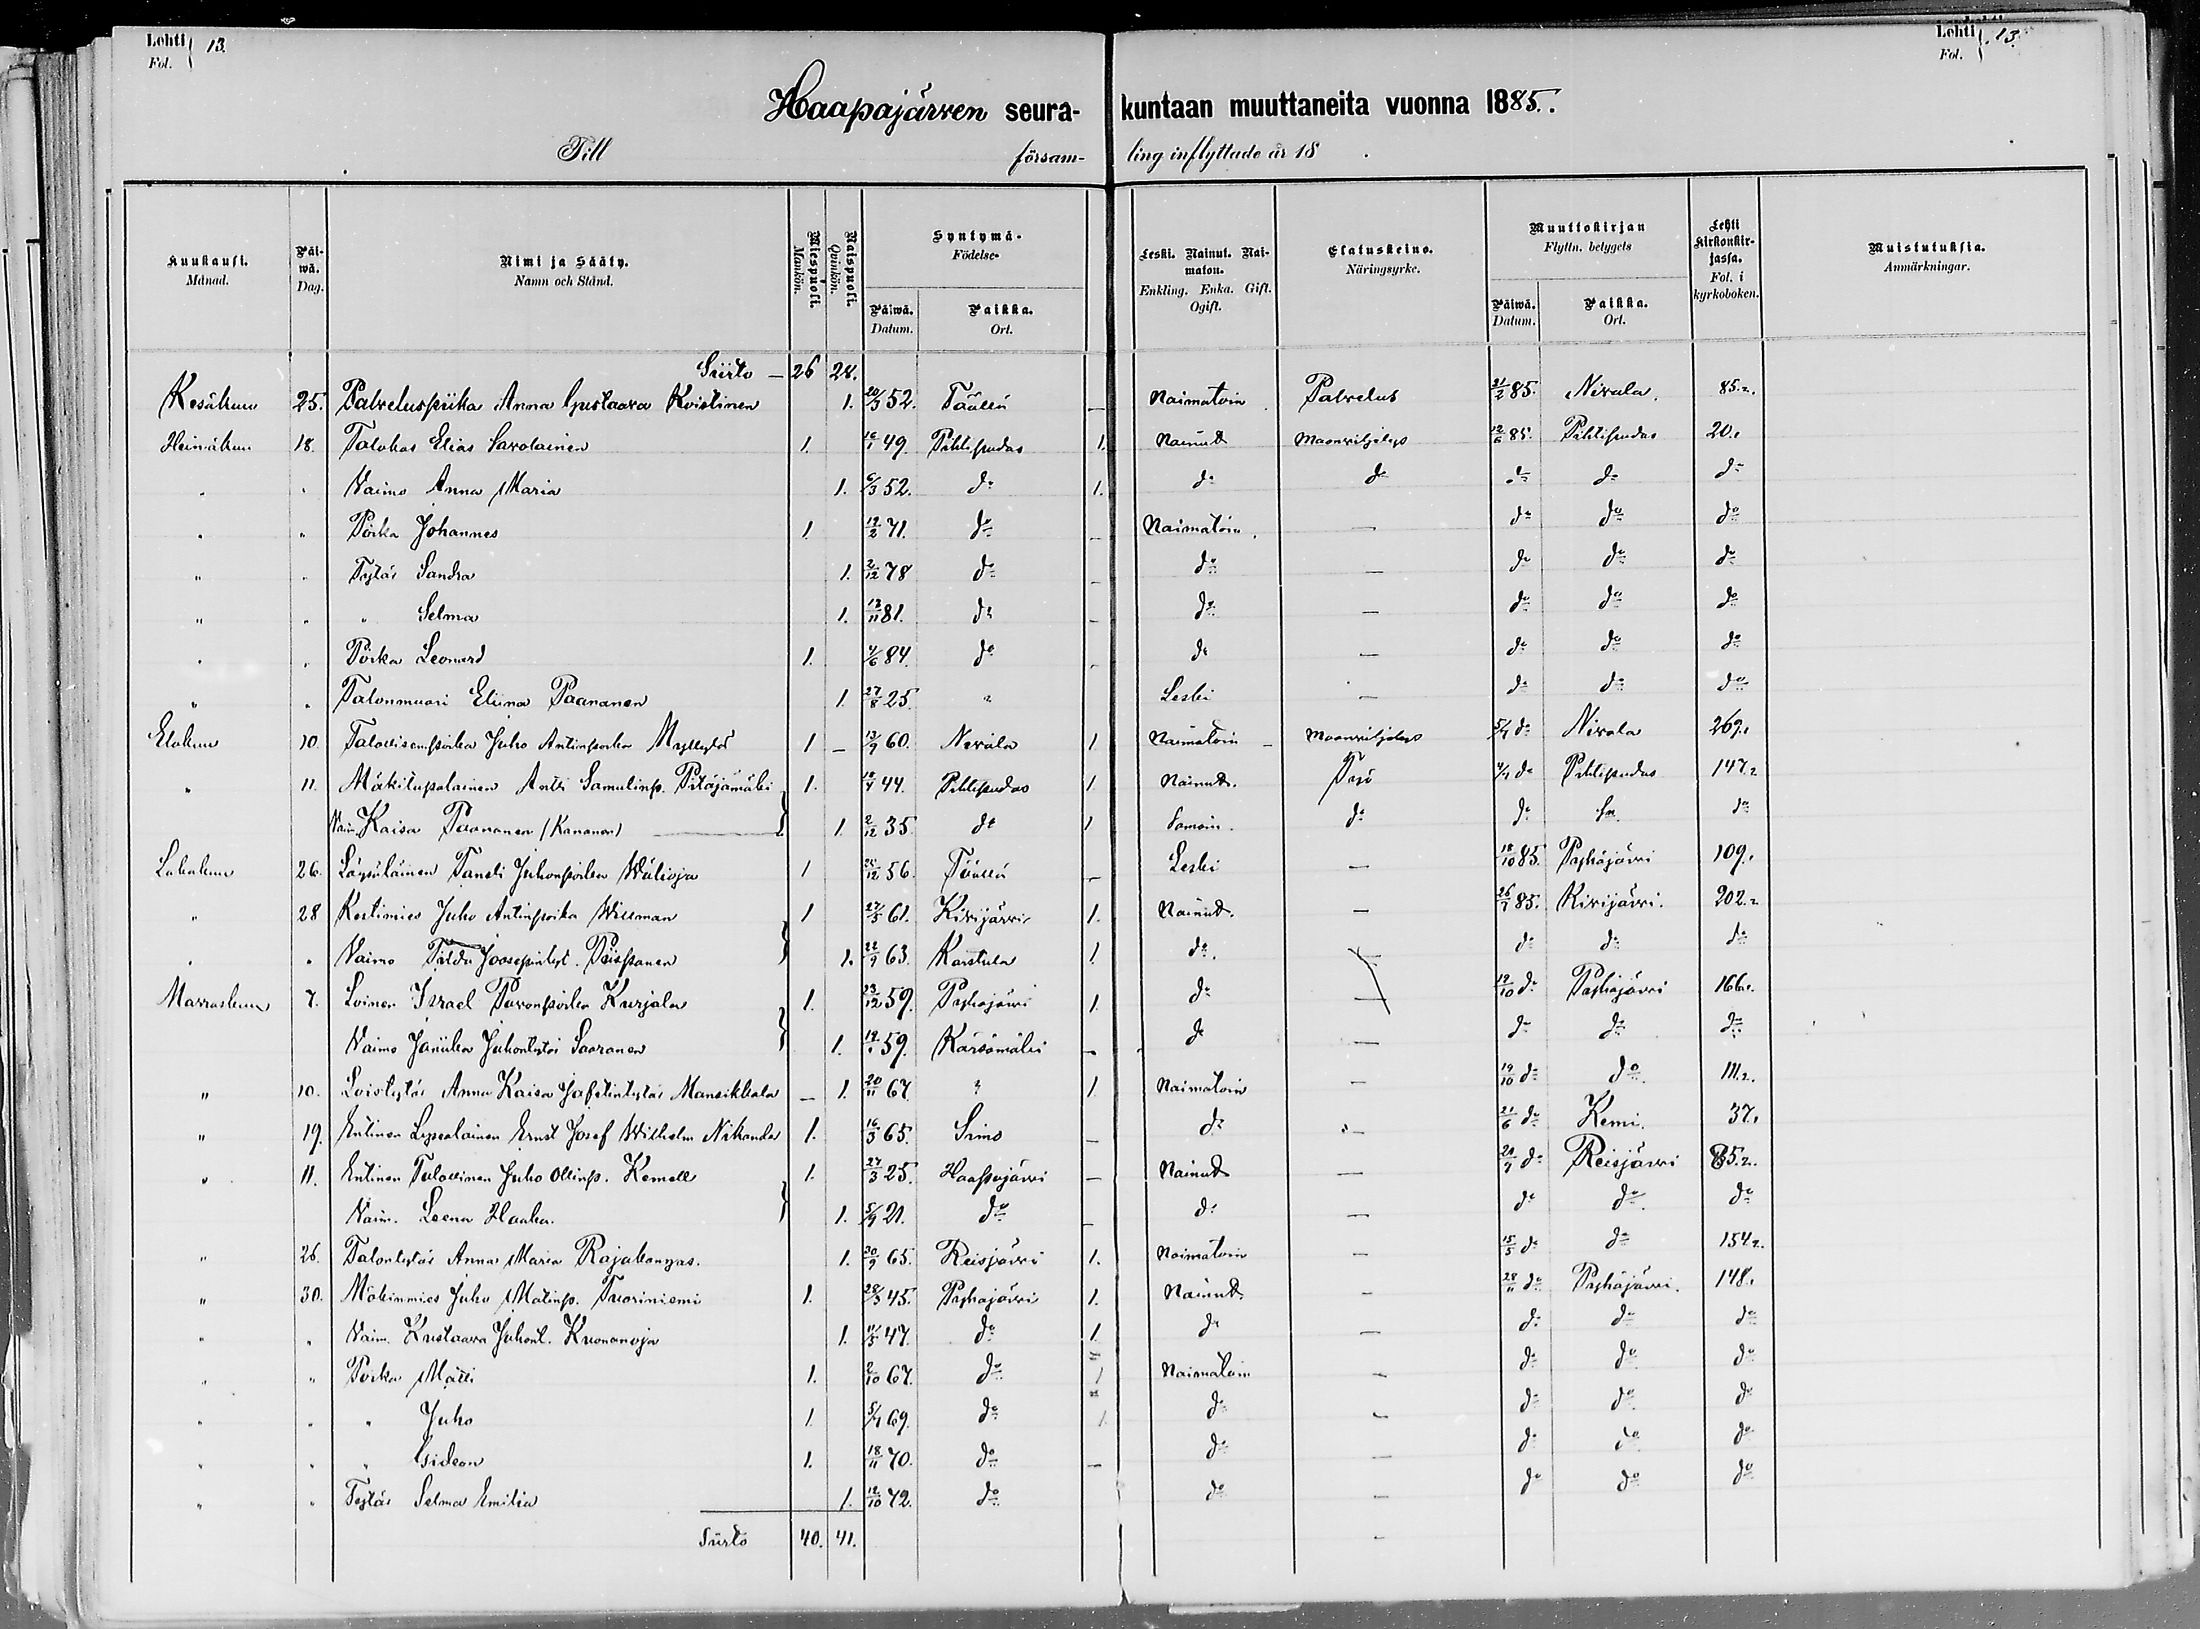 Lehti 13.
Fol.
Lehti 13.
Fol.
Haapajärven seura- kuntaan muuttaneita vuonna 1885.
Till försam- ling inflyttade år 18 .
Kuukausi. Månad. Päi-wä. Dag. Nimi ja Sääty. Namn och Stånd. Miespuoli. Mankön. Naispuoli. Qvinkön. Syntymä- Födelse- Päiwä. Datum. Paikka. Ort. Leski. Nainut. Nai-maton. Enkling. Enka. Gift. Ogift. Elatuskeino. Näringsyrke. Muuttokirjan Flyttn. betygets Päiwä. Datum. Paikka. Ort. Lehti kirkonkir-jassa. Fol. i kyrkoboken. Muistutuksia. Anmärkningar.
Siirto — 26 28.
Kesäkuu 25. Palveluspiika Anna Gustaava Koistinen 1. 20/3 52. Täällä — Naimatoin Palvelus 21/2 85. Nivala. 85.2.
Heinäkuu 18. Talokas Elias Savolainen 1. 16/1 49. Pihtipudas 1. Nainut Maanviljelys 12/6 85. Pihtipudas 20.1
" " Vaimo Anna Maria 1. 6/3 52. do 1. do do do do do
" " Poika Johannes 1 12/2 71. do — Naimatoin. — do do do
" " Tytär Sandra 1. 2/12 78 do — do — do do do
" " " Selma 1. 13/11 81. do — do — do do do
" " Poika Leonard 1. 4/6 84. do — do — do do do
" " Talonmuori Eliina Paananen 1. 27/8 25. " Leski — do do do
Elokuu 10. Talollisenpoika Juho Antinpoika Myllylä 1 — 13/9 60. Nivala 1 Naimatoin — Maanviljelys 5/7 do Nivala 269.1
" 11. Mäkitupalainen Antti Samulinp. Pitäjämäki 1. 12/4 44. Pihtipudas 1 Nainut. Työ 4/7 do Pihtipudas 147.2
Vaim. Kaisa Paananen (Kananen) 1. 2/12 35. do 1 Samoin. do do do do
Lokakuu 26. Läysäläinen Taneli Juhonpoika Wälioja 1 25/12 56. Täällä — Leski — 18/10 85. Pyhäjärvi 109.1
" 28 Kestimies Juho Antinpoika Willman 1 27/5 61. Kivijärvi 1. Nainut. — 26/9 85. Kivijärvi. 202.2
" " Vaimo Tilda Joosepintyt. Piispanen 1. 22/9 63. Karstula 1 do. do do do
Marraskuu 7. Loinen Israel Paavonpoika Kurjala 1. 23/12 59. Pyhäjärvi 1. do — 12/10 do Pyhäjärvi 166.1
Vaimo Juhontytär Saaranen 1. 59. Kärsämäki — do — do do do
" 10. Loistytär Anna Kaisa Mansikkala — 1. 20/11 67. " 1 Naimatoin — 19/10 do do 111.2.
" 19. Entinen Ernst Josef Wilhelm Nikander 1. 16/3 65. Simo — do " — 21/6 do Kemi. 37.1
" 11. Entinen Talollinen Juho Ollinp. Kemell 1. 27/3 25. Haapajärvi — Nainut — 20/9 do Reisjärvi 85.2.
Vaim. Leena Haaka. 1. 5/9 21. do — do — do do do
" 26. Talontytär Anna Maria Rajakangas. 1. 30/9 65. Reisjärvi 1. Naimatoin — 15/5 do do 154.2.
" 30. Mäkinmies Juho Matinp. Tuoriniemi 1. 28/3 45. Pyhäjärvi 1. Nainut — 28/11 do Pyhäjärvi. 148.1
" " Vaim. Kustaava Juhont. Kuonanoja 1. 11/5 47. do 1. do — do do do
" " Poika Matti 1. 2/10 67. do Naimatoin — do do do
" " " Juho 1. 5/7 69. do 1 do — do do do
" " " Gideon 1. 18/11 70. do — do — do do do
" " Tytär Selma Emilia 1. 12/10 72. do do — do do do
Siirto 40. 41. —